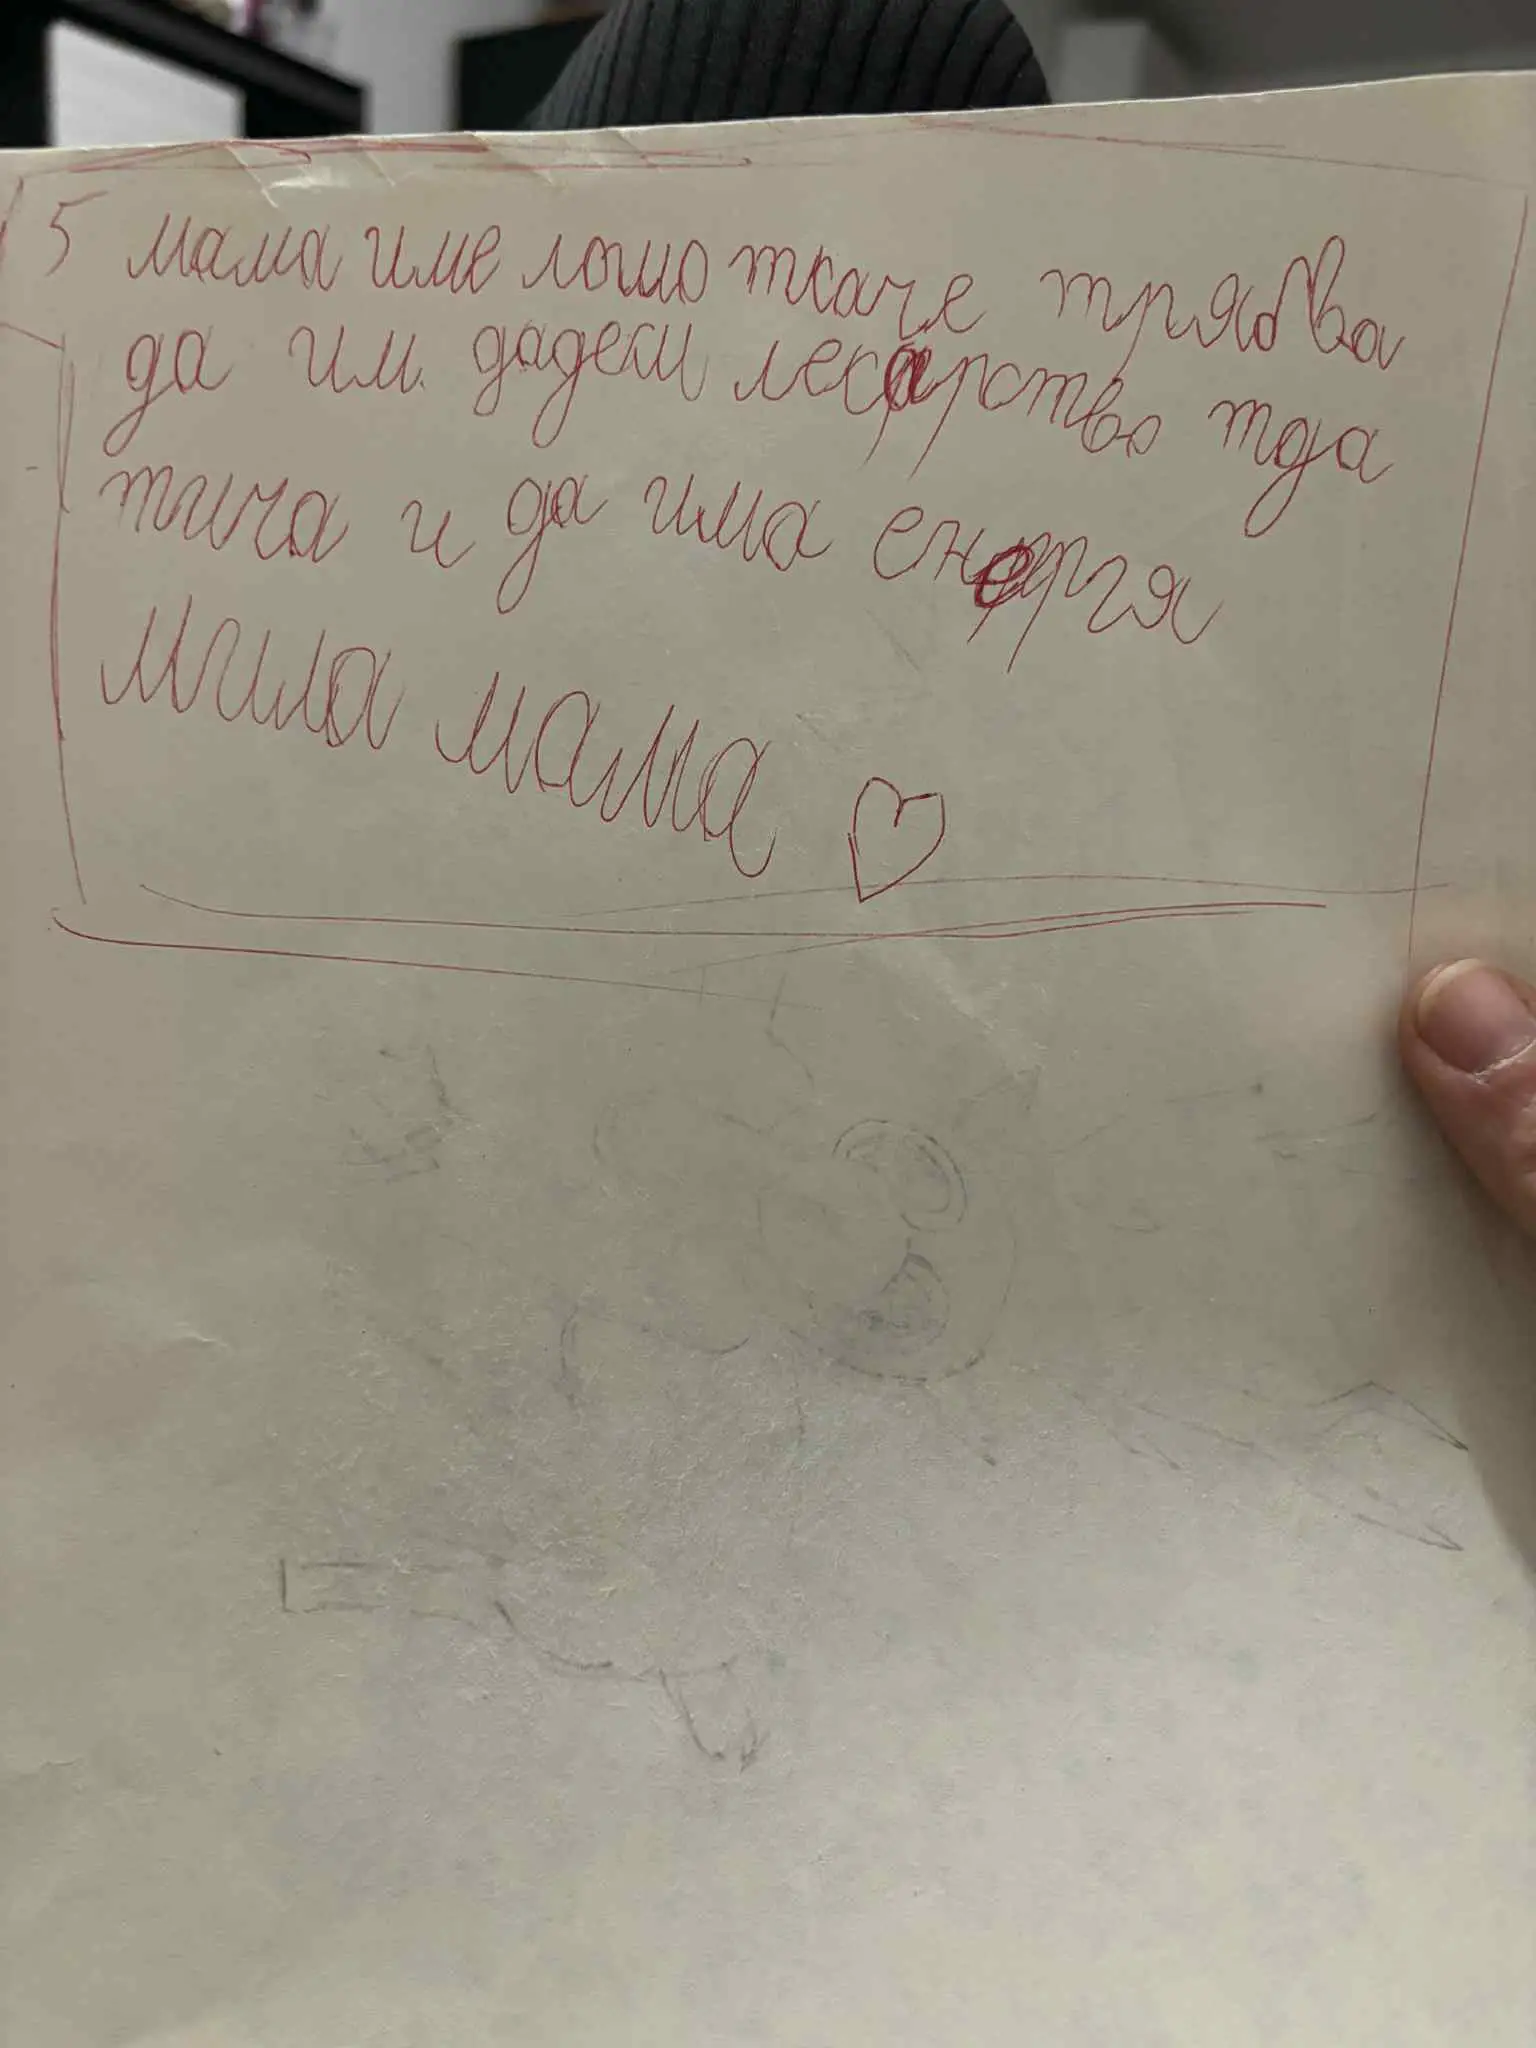 5 мама име лошо ткаче трябва
да им. дадеш лекарство тда
тича и да има енергя
мила мама